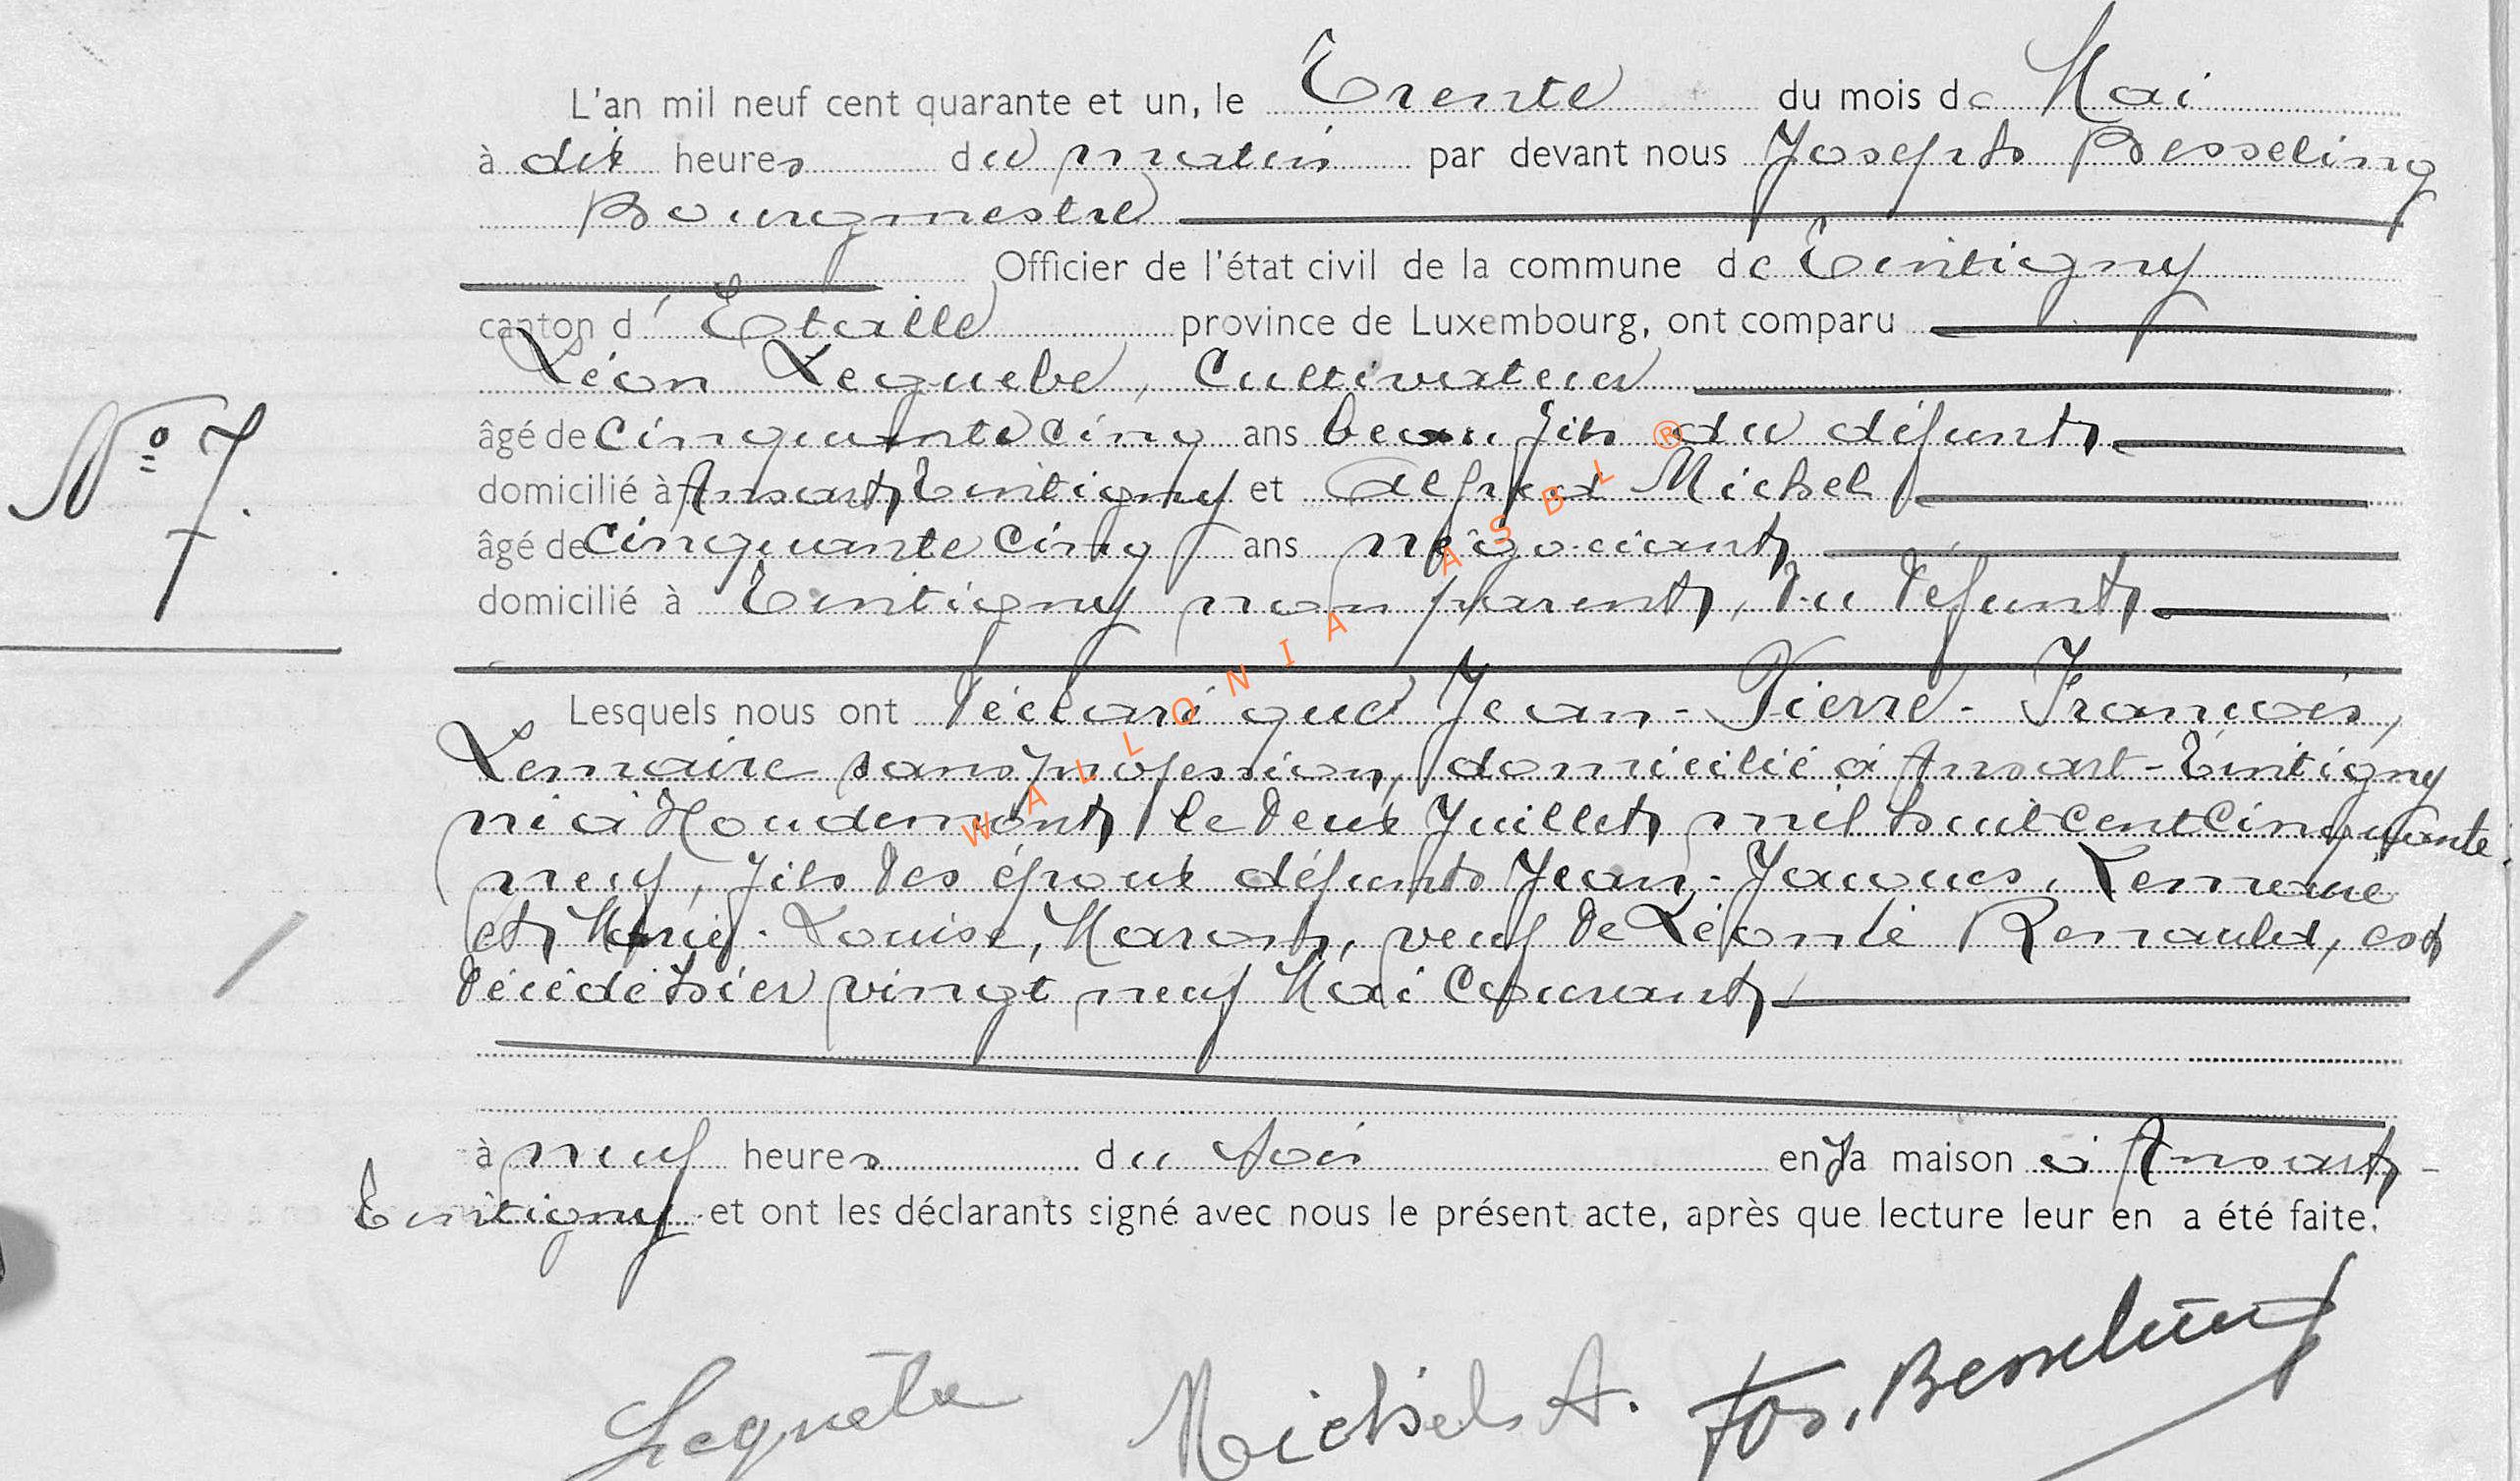 L'an mil neuf cent quarante et un, le Trente du mois de Mai
à dix heures du matin par devant nous Joseph Besseling
Bourgmestre
Officier de l'état civil de la commune de Tintigny
canton d'Etalle province de Luxembourg, ont comparu
Léon Lequebe, Cultivateur
âgé de Cinquante cinq ans beau fils du défunt
domicilié à Ansart Tintigny et Alfred Michel
N° 7.
âgé de Cinquante Cinq ans négociant
domicilié à Tintigny non parent, du défunt
Lesquels nous ont déclaré que Jean-Pierre-François,
Lemaire sans profession, domicilié à Ansart-Tintigny
né à Houdemont le deux Juillet mil huit Cent Cinquante
neuf, fils des époux défunts Jean-Jacques, Lemaire
et Marie-Louise, Maront, veuf de Léonie Renauld, est
décédé hier vingt neuf Mai Courant
à neuf heures du soir en sa maison à Ansart-
Tintigny et ont les déclarants signé avec nous le présent acte, après que lecture leur en a été faite.
Michel A. Jos. Besseling
WALLONIA ASBL ®